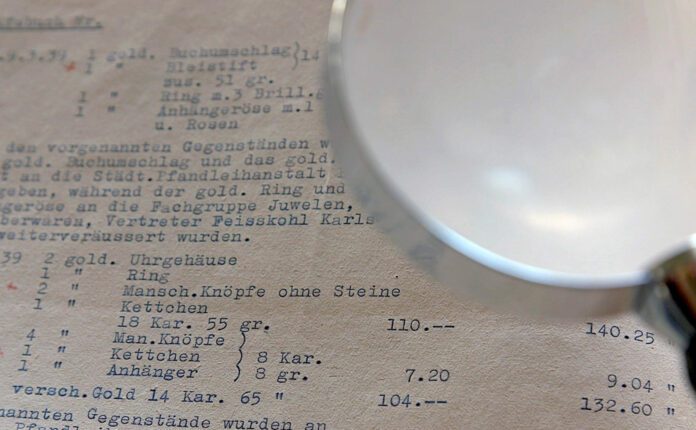 .9.3.39 1 gold. Buchumschlag}14
1 " Bleistift
zus. 51 gr.
1 " Ring m.3 Brill.
1 " Anhängeröse m.1
u. Rosen
den vorgenannten Gegenständen w
gold. Buchumschlag und das gold.
t an die Städt.Pfandleihanstalt
geben, während der gold. Ring und
geröse an die Fachgruppe Juwelen,
berwaren, Vertreter Feisskohl Karls
weiterveräussert wurden.
39 2 gold. Uhrgehäuse
1 " Ring
2 " Mansch.Knöpfe ohne Steine
1 " Kettchen
18 Kar. 55 gr. 110.-- 140.25 "
4 " Man.Knöpfe }
1 " Kettchen } 8 Kar.
1 " Anhänger } 8 gr. 7.20 9.04 "
versch.Gold 14 Kar. 65 " 104.-- 132.60 "
nannten Gegenstände wurden an